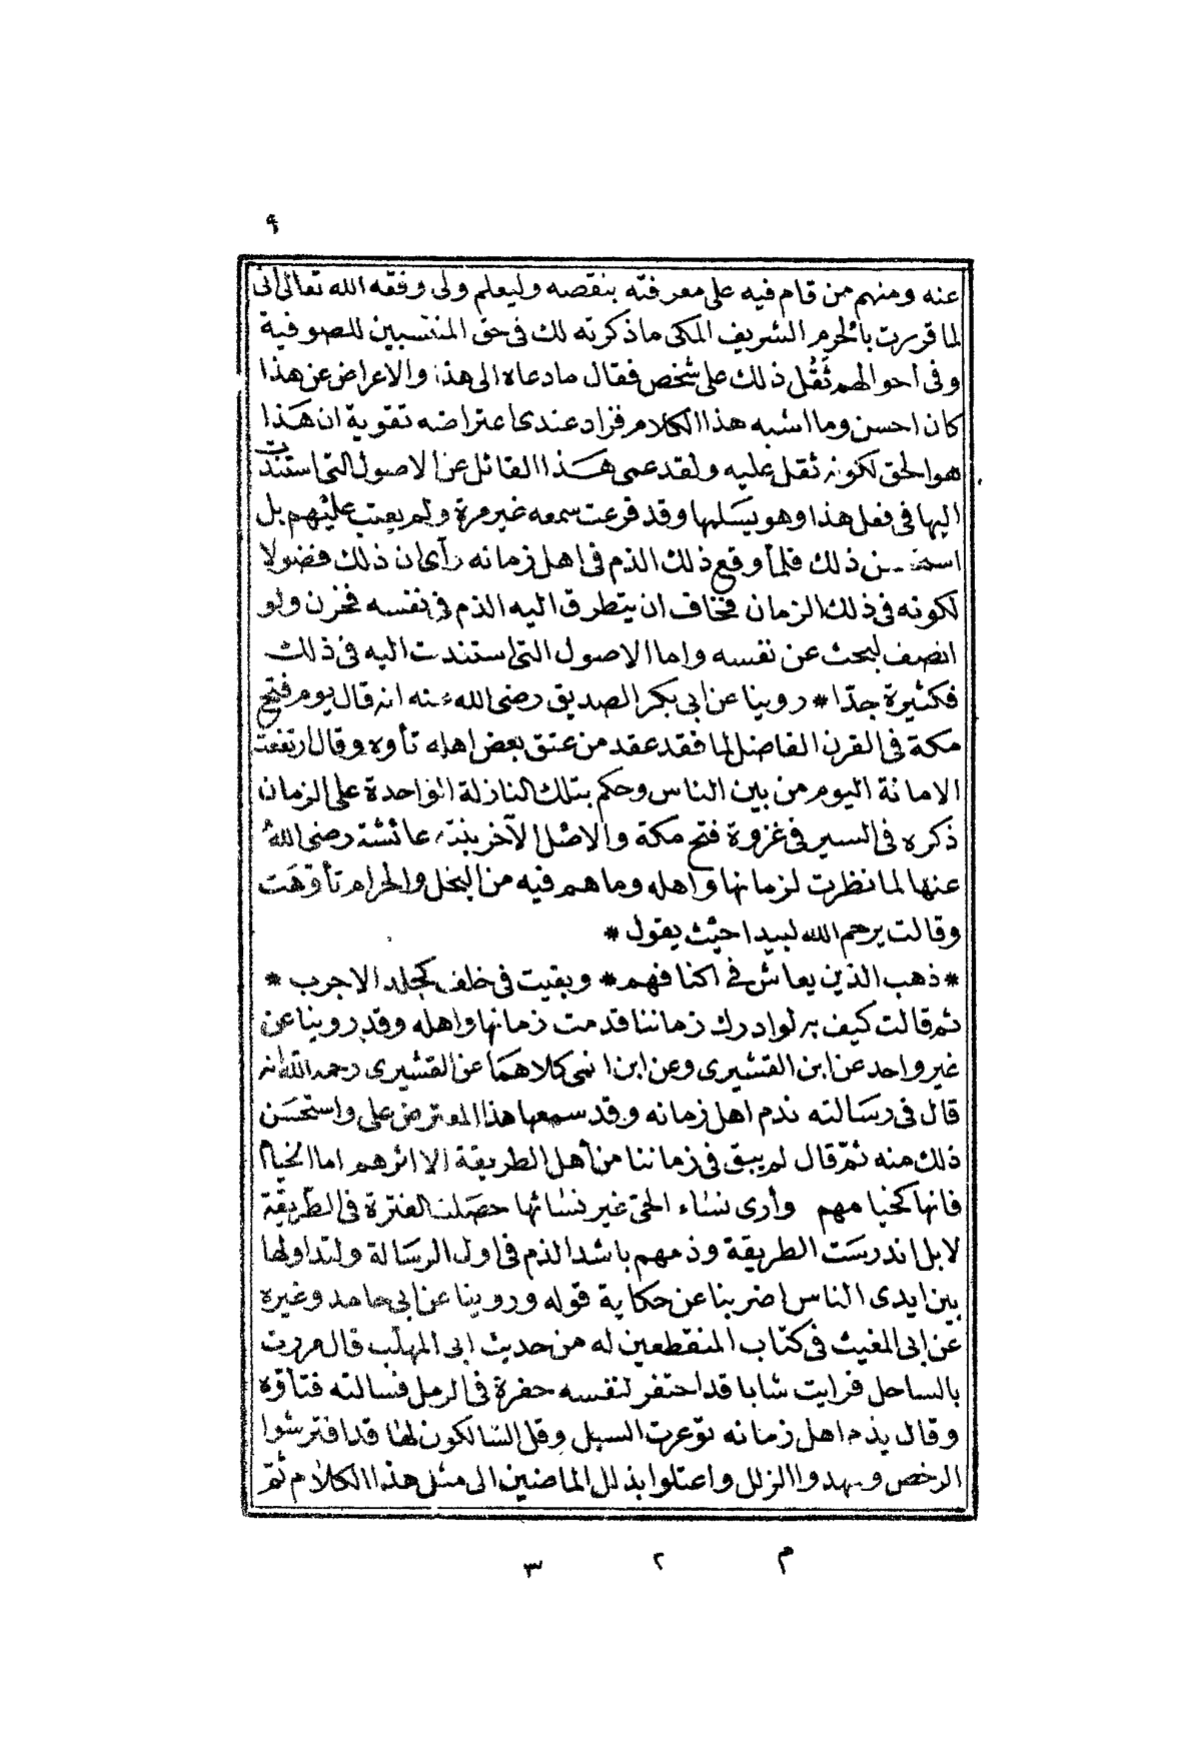 ٩
عنه ومنهم من قام فيه على معرفته بنقصه وليعلم ولى وفقه الله تعالى انى
لما قررت بالحرم الشريف المكى ما ذكرته لك فى حق المنتسبين للصوفية
وفى احوالهم ثَقُل ذلك على شخص فقال ما دعاه الى هذا والاعراض عن هذا
كان احسن وما اشبه هذا الكلام فزاد عندى اعتراضه تقوية ان هَذا
هو الحق لكونه ثقل عليه ولقد عمى هَذا القائل عن الاصول التى استندت
اليها فى فعل هذا وهو يسَلمها وقد قرعت سمعه غير مرة ولم يعتب عليهم بل
ذلك فلما وقع ذلك الذم فى اهل زمانه رأى ان ذلك فضولا
لكونه فى ذلك الزمان فخاف ان يتطرق اليه الذم فى نفسه فحزن ولو
انصف لبحث عن نفسه واما الاصول التى استندت اليه فى ذلك
فكثيرة جدّا * روينا عن ابى بكر الصديق رضى الله عنه انه قال يوم فتح
مكة فى القرن الفاضل لما فقد عقد من عنق بعض اهله تأوه وقال ارتفعت
الامانة اليوم من بين الناس وحكم بتلك النازلة الواحدة على الزمان
ذكره فى السير فى غزوة فتح مكة والاصْل الآخر بنته عائشة رضى اللهُ
عنها لما نظرت لزمانها واهله وما هم فيه من البخل والحرام تأوّهَت
وقالت يرحم الله لبيدا حيْث يقول *
* ذهب الذين يعاش فى اكنافهم * وبقيت فى خلف كجلد الاجرب *
ثم قالت كيف به لو ادرك زماننا قدمت زمانها واهله وقد روينا عن
غير واحد عن ابن القشيرى وعن ابن كلاهمَا عن القشيرى رحمه الله انه
قال فى رسَالته نذم اهل زمانه وقد سمعها هذا المعترض على واستحسَن
ذلك منه ثمّ قال لم يبق فى زماننا من أهل الطريقة الا اثرهم اما الخيام
فانها كخيامهم وأرى نسَاء الحىّ غير نسَائها حصَلت الفترة فى الطّريقة
لا بل اندرسَت الطريقة وذمهم باشد الذم فى اول الرسَالة ولتداولها
بين ايدى الناس اضربنا عن حكاية قوله وروينا عن ابى حامد وغيره
عن ابى المغيث فى كتاب المنقطعين له من حديث ابى المهلّب قال مررت
بالساحل فرايت شابا قد احتفر لنفسه حفرة فى الرمل فسالته فتأوّه
وقال يذم اهل زمانه توعرت السبل وقل السّالكون لهَا قد افترشوا
الرخص ومهدوا الزلل واعتلوا بذلل الماضين الى مثل هذا الكلام ثمّ
م ٢ ٣